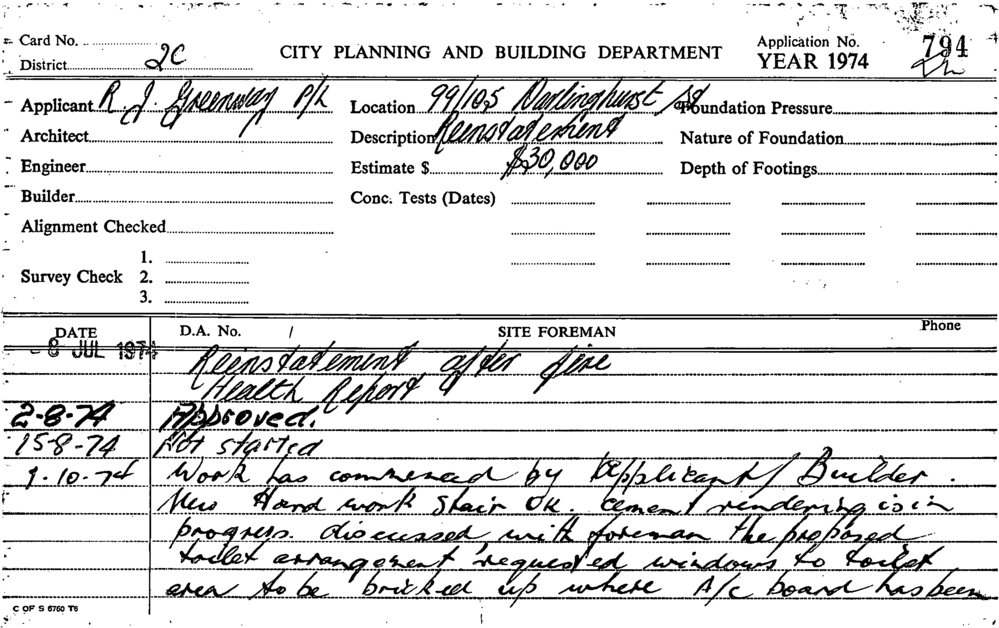 Card No.
CITY PLANNING AND BUILDING DEPARTMENT
Application No. 794
District 2C
YEAR 1974
Applicant R. J. Greenway P/L
Location 99/105 Darlinghurst Rd
Foundation Pressure
Architect
Description Reinstatement
Nature of Foundation
Engineer
Estimate $ $30,000
Depth of Footings
Builder
Conc. Tests (Dates)
Alignment Checked
1.
Survey Check 2.
3.
DATE D.A. No. / SITE FOREMAN Phone
- 8 JUL 1974 Reinstatement after fire
Health Report
2-8-74 Approved.
15-8-74 Not started
9-10-74 Work has commenced by Applicant/Builder.
New Hard work Stair OK. Cement rendering is in
progress. discussed with foreman the proposed
toilet arrangement requested windows to toilet
area to be bricked up where A/c board has been
C OF S 6760 T6